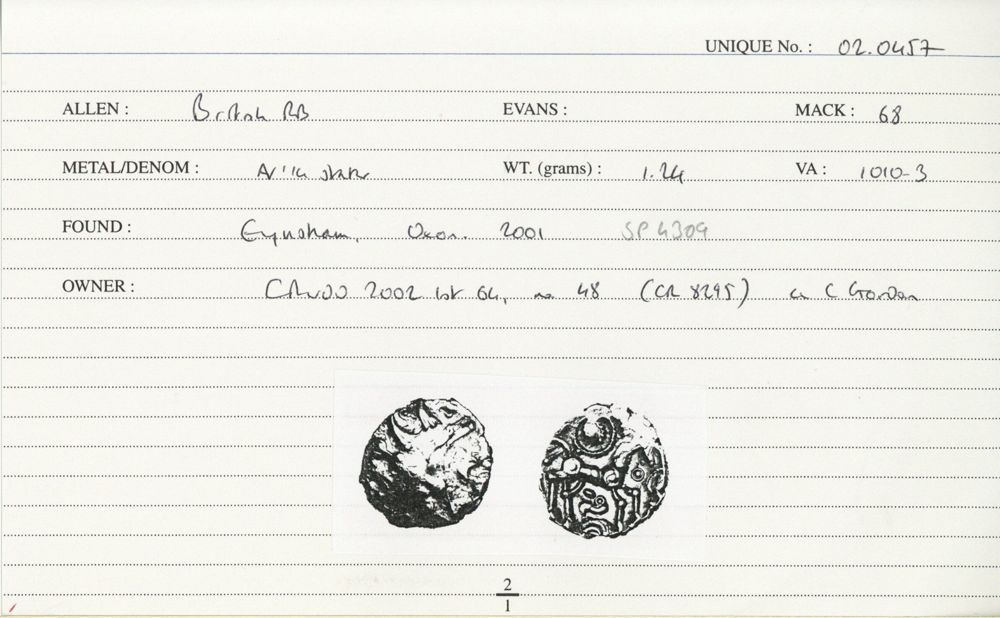 UNIQUE No. : 02.0457
ALLEN : British RB EVANS : MACK : 68
METAL/DENOM : AV 1/4 stater WT. (grams) : 1.24 VA : 1010-3
FOUND : Eynsham, Oxon. 2001 SP 4309
OWNER : 2002 lst 64, no 48 (CR 8295) C Gordon
2
1